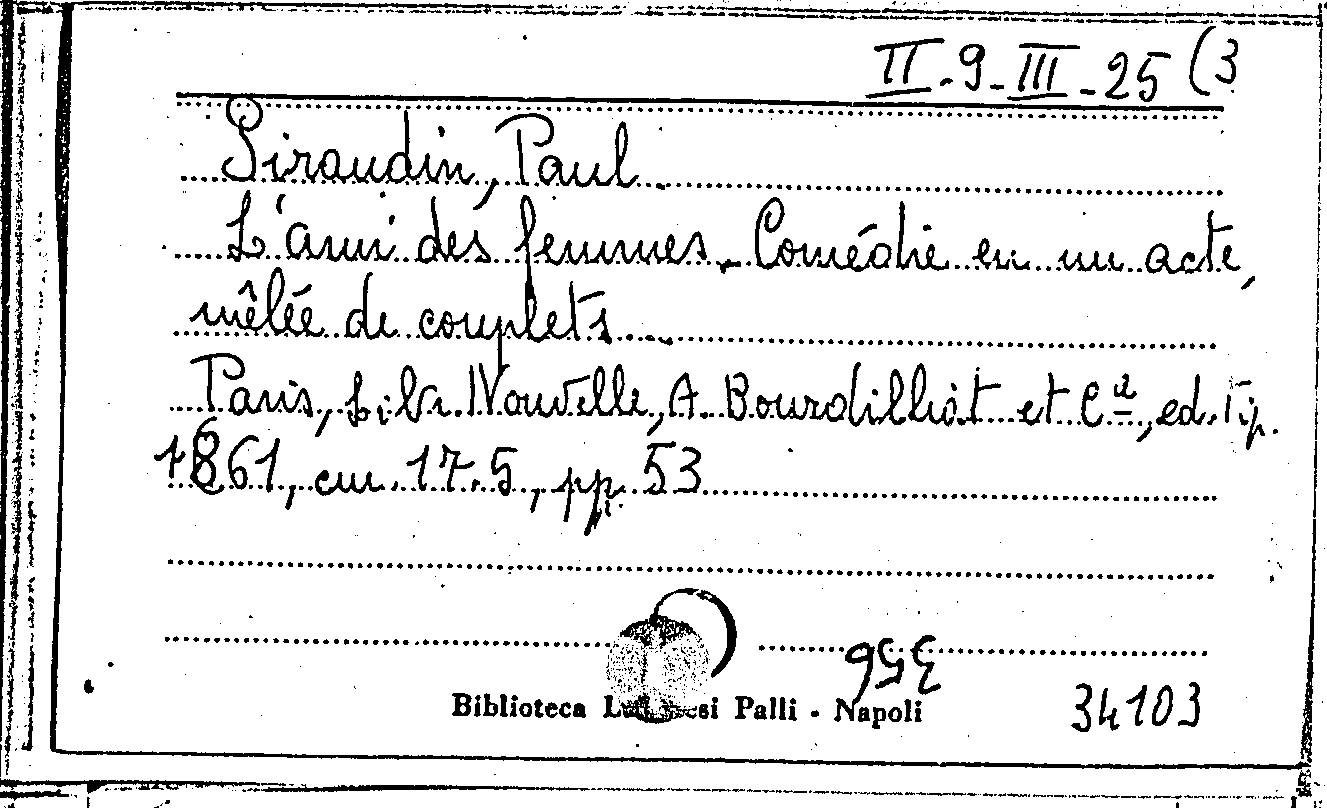 II-9-III-25 (3
Siraudin, Paul.
L'ami des femmes. Comédie en un acte,
mêlée de couplets...
Paris, Libr. Nouvelle, A. Bourdilliat et C.ie, ed. Tip.
1861, cm. 17.5, pp. 53
356
Biblioteca Lucchesi Palli - Napoli
34103